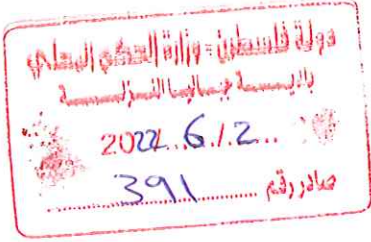 دولة فلسطين - وزارة الحكم المحلي
بلديـــة جبـاليـا النـزلـــة
2022 . 6 / 2
صادر رقم 391